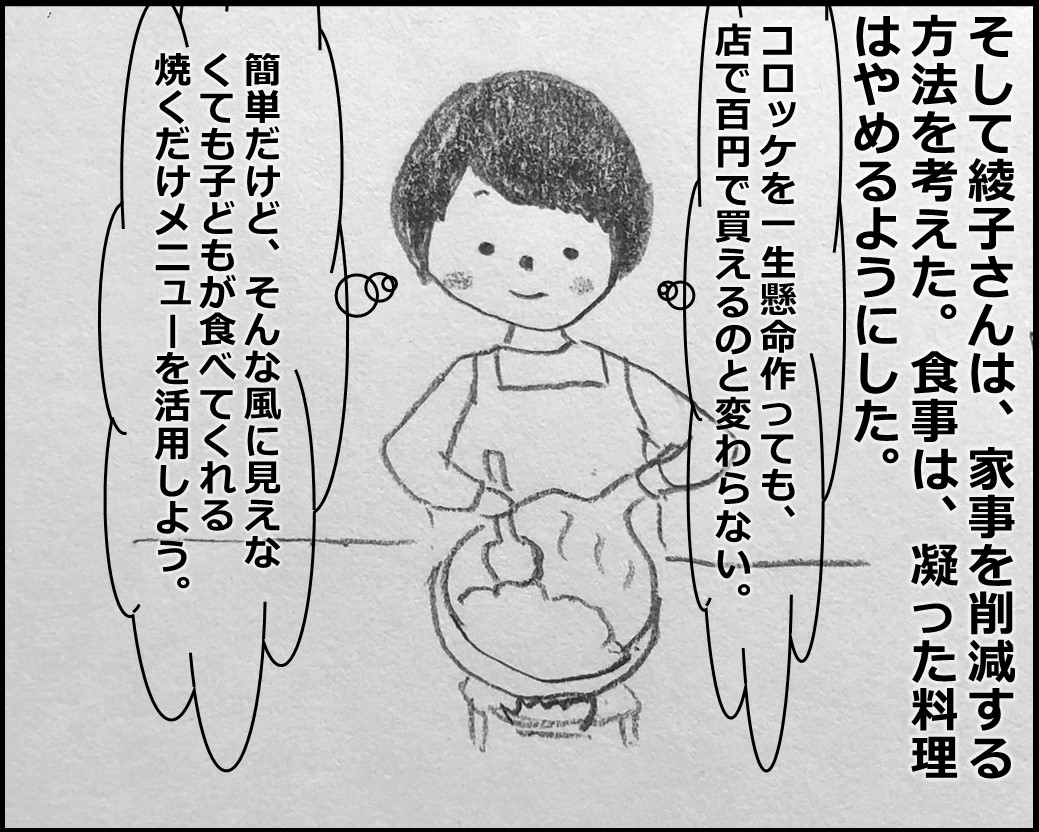 そして綾子さんは、家事を削減する
方法を考えた。食事は、凝った料理
はやめるようにした。
コロッケを一生懸命作っても、
店で百円で買えるのと変わらない。
簡単だけど、そんな風に見えな
くても子どもが食べてくれる
焼くだけメニューを活用しよう。